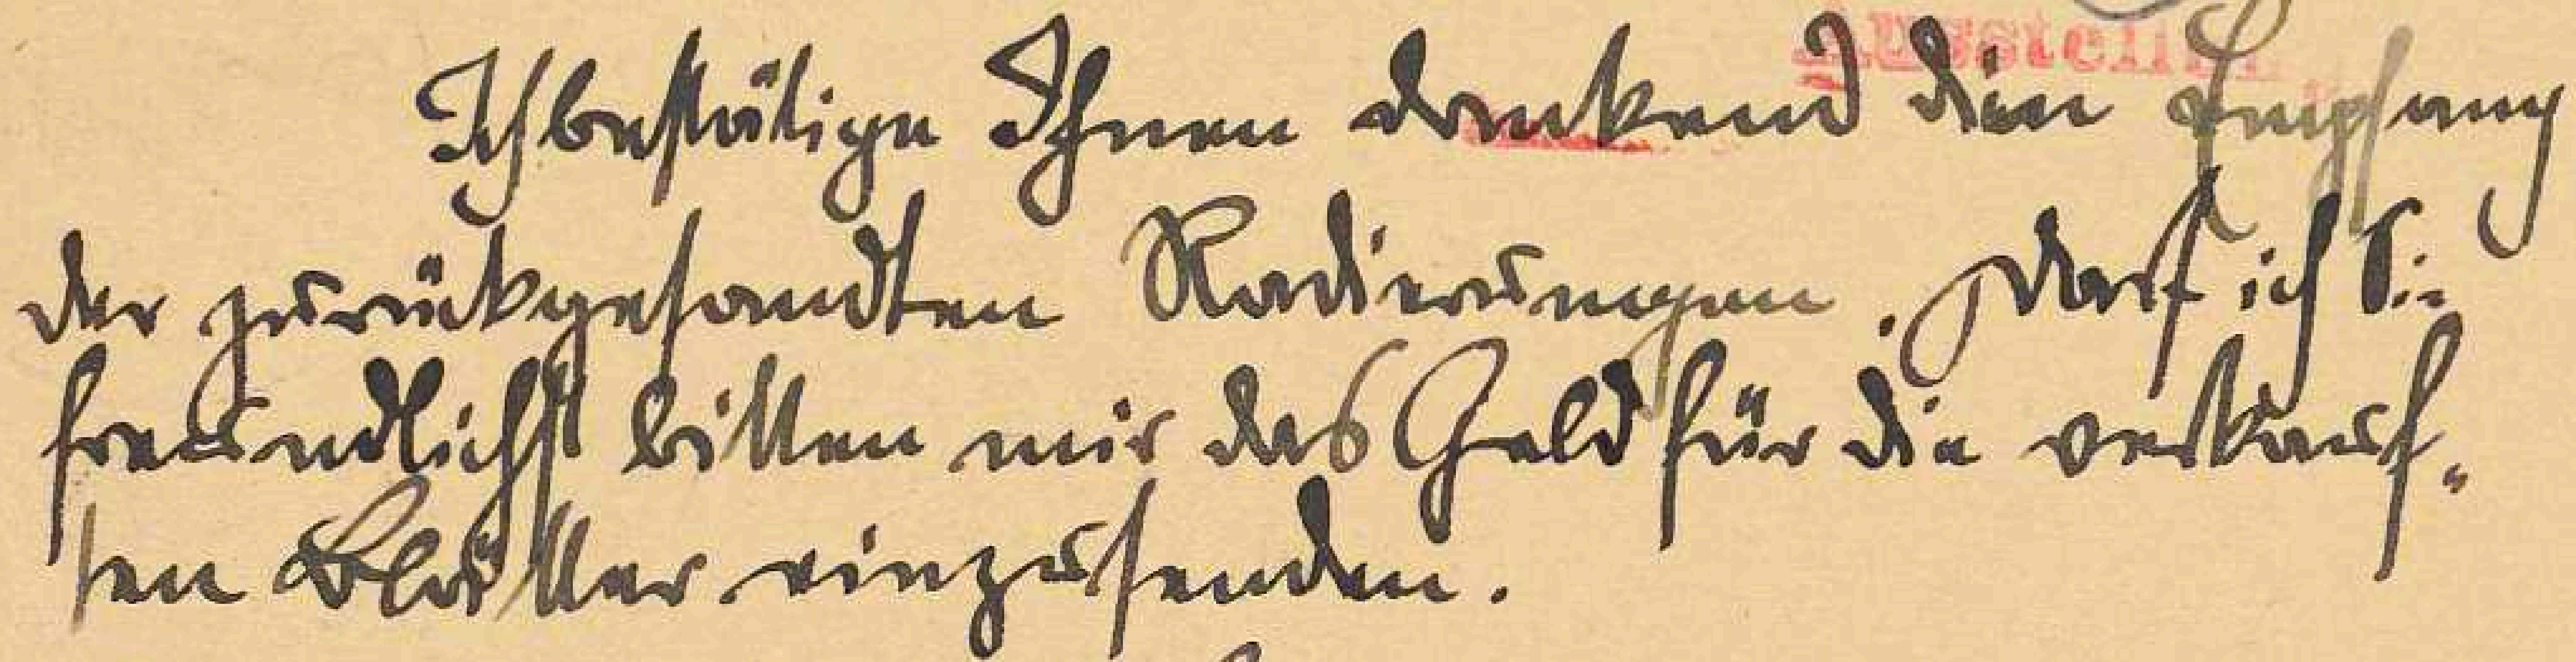 Ausstellun
Ich bestätige Ihnen dankend den Empfang
der zurückgesandten Radierungen. Darf ich Sie
freundlichst bitten mir das Geld für die verkauf„
ten Blätter einzusenden.